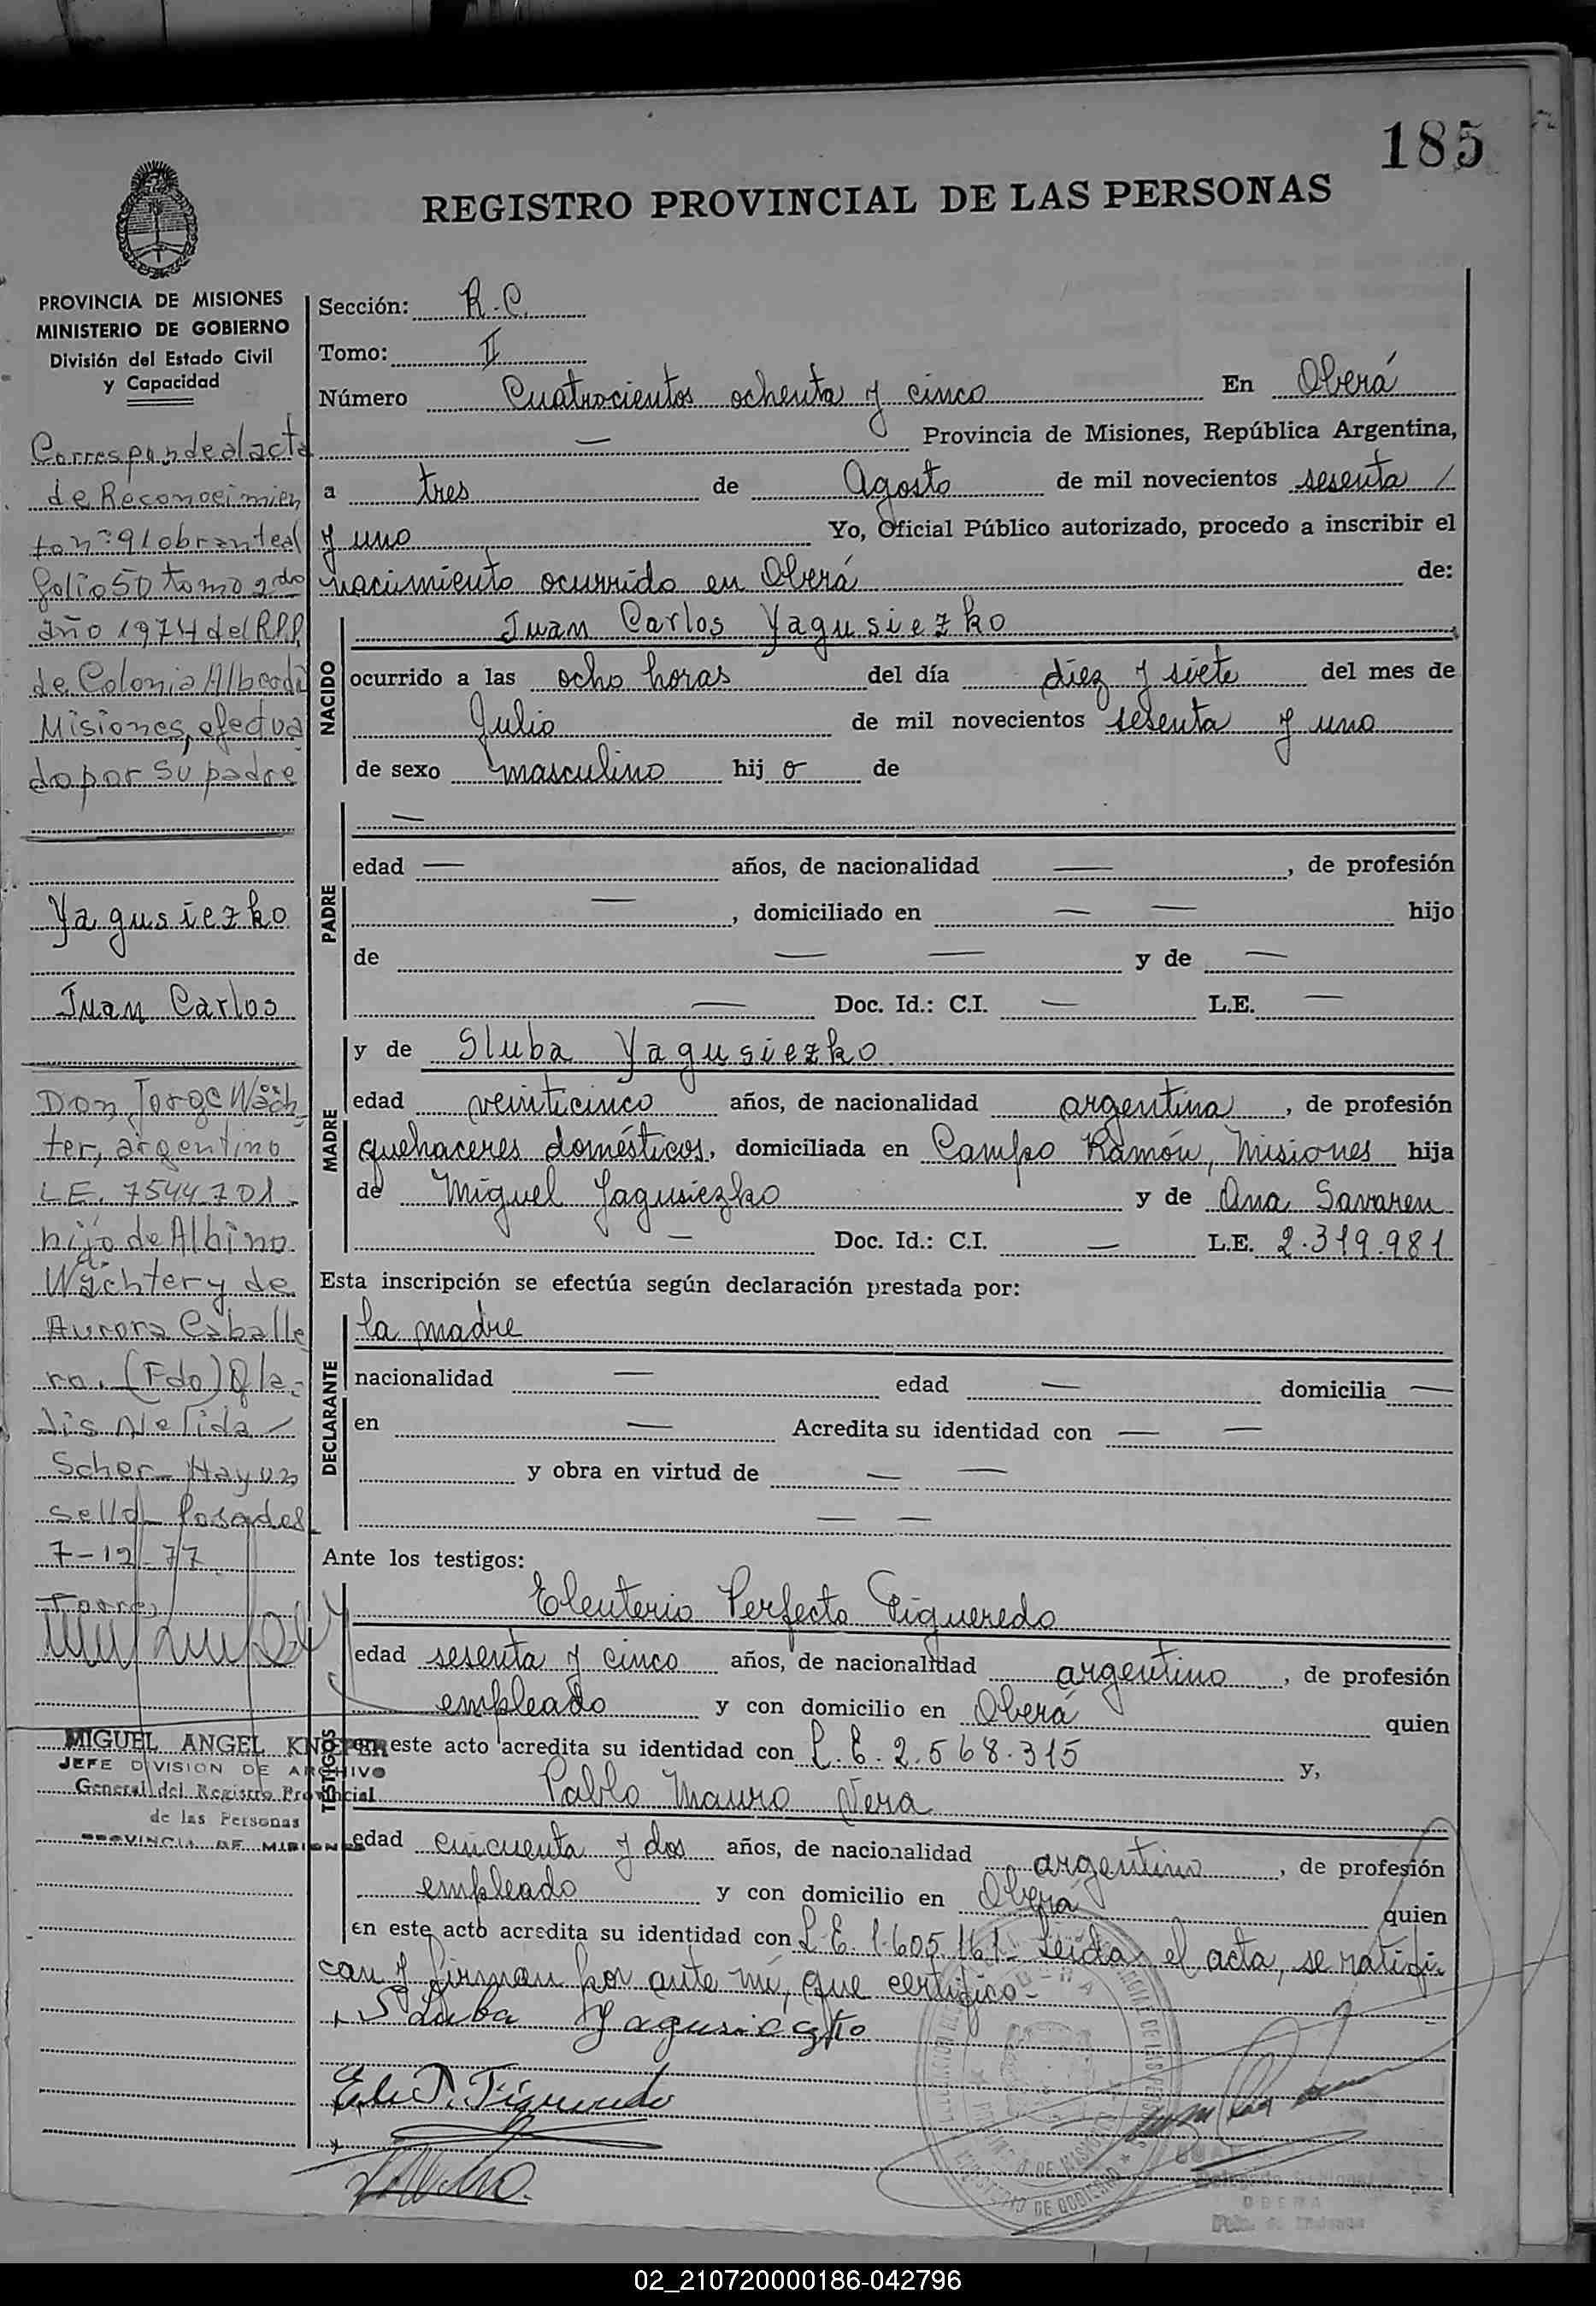 185
REGISTRO PROVINCIAL DE LAS PERSONAS
PROVINCIA DE MISIONES
MINISTERIO DE GOBIERNO
División del Estado Civil
y Capacidad
Corresponde al acta
de Reconocimien
to nº 91 obrante al
folio 50 tomo 2do
año 1974 del R.P.P.
de Colonia Alberdi
Misiones, efectua
do por su padre
Yagusiezko
Juan Carlos
Don Jorge Wäch
ter, argentino
L.E. 7544701
hijo de Albino
Wächter y de
Aurora Caballe
ro. (Fdo) Gla
dis Nelida
Scher Hay un
sello Posadas
7-12-77
Torres
MIGUEL ANGEL KNOEPER
JEFE DIVISION DE ARCHIVO
General del Registro Provincial
de las Personas
PROVINCIA DE MISIONES
Sección: R.C.
Tomo: II
Número Cuatrocientos ochenta y cinco En Oberá
— Provincia de Misiones, República Argentina,
a tres de Agosto de mil novecientos sesenta /
y uno Yo, Oficial Público autorizado, procedo a inscribir el
nacimiento ocurrido en Oberá de:
NACIDO
Juan Carlos Yagusiezko
ocurrido a las ocho horas del día diez y siete del mes de
Julio de mil novecientos sesenta y uno
de sexo masculino hij o de
PADRE
—
edad — años, de nacionalidad — , de profesión
— , domiciliado en — — hijo
de — — y de —
— Doc. Id.: C.I. — L.E. —
MADRE
y de Sluba Yagusiezko
edad veinticinco años, de nacionalidad argentina , de profesión
quehaceres domésticos, domiciliada en Campo Ramón, Misiones hija
de Miguel Jagusiezko y de Ana Savaren
— Doc. Id.: C.I. — L.E. 2.319.981
Esta inscripción se efectúa según declaración prestada por:
DECLARANTE
la madre
nacionalidad — edad — domicilia —
en — Acredita su identidad con — —
y obra en virtud de — —
— —
Ante los testigos:
TESTIGOS
Eleuterio Perfecto Figueredo
edad sesenta y cinco años, de nacionalidad argentino , de profesión
empleado y con domicilio en Oberá quien
en este acto acredita su identidad con L.E. 2.568.315 y,
Pablo Mauro Vera
edad cincuenta y dos años, de nacionalidad argentino , de profesión
empleado y con domicilio en Oberá quien
en este acto acredita su identidad con L.E. 1.605.161- Leida el acta, se ratifi-
can y firman por ante mí, que certifico-
Sluba Yagusiezko
Ele P. Figueredo
MINISTERIO DE GOBIERNO
OBERA
02_210720000186-042796